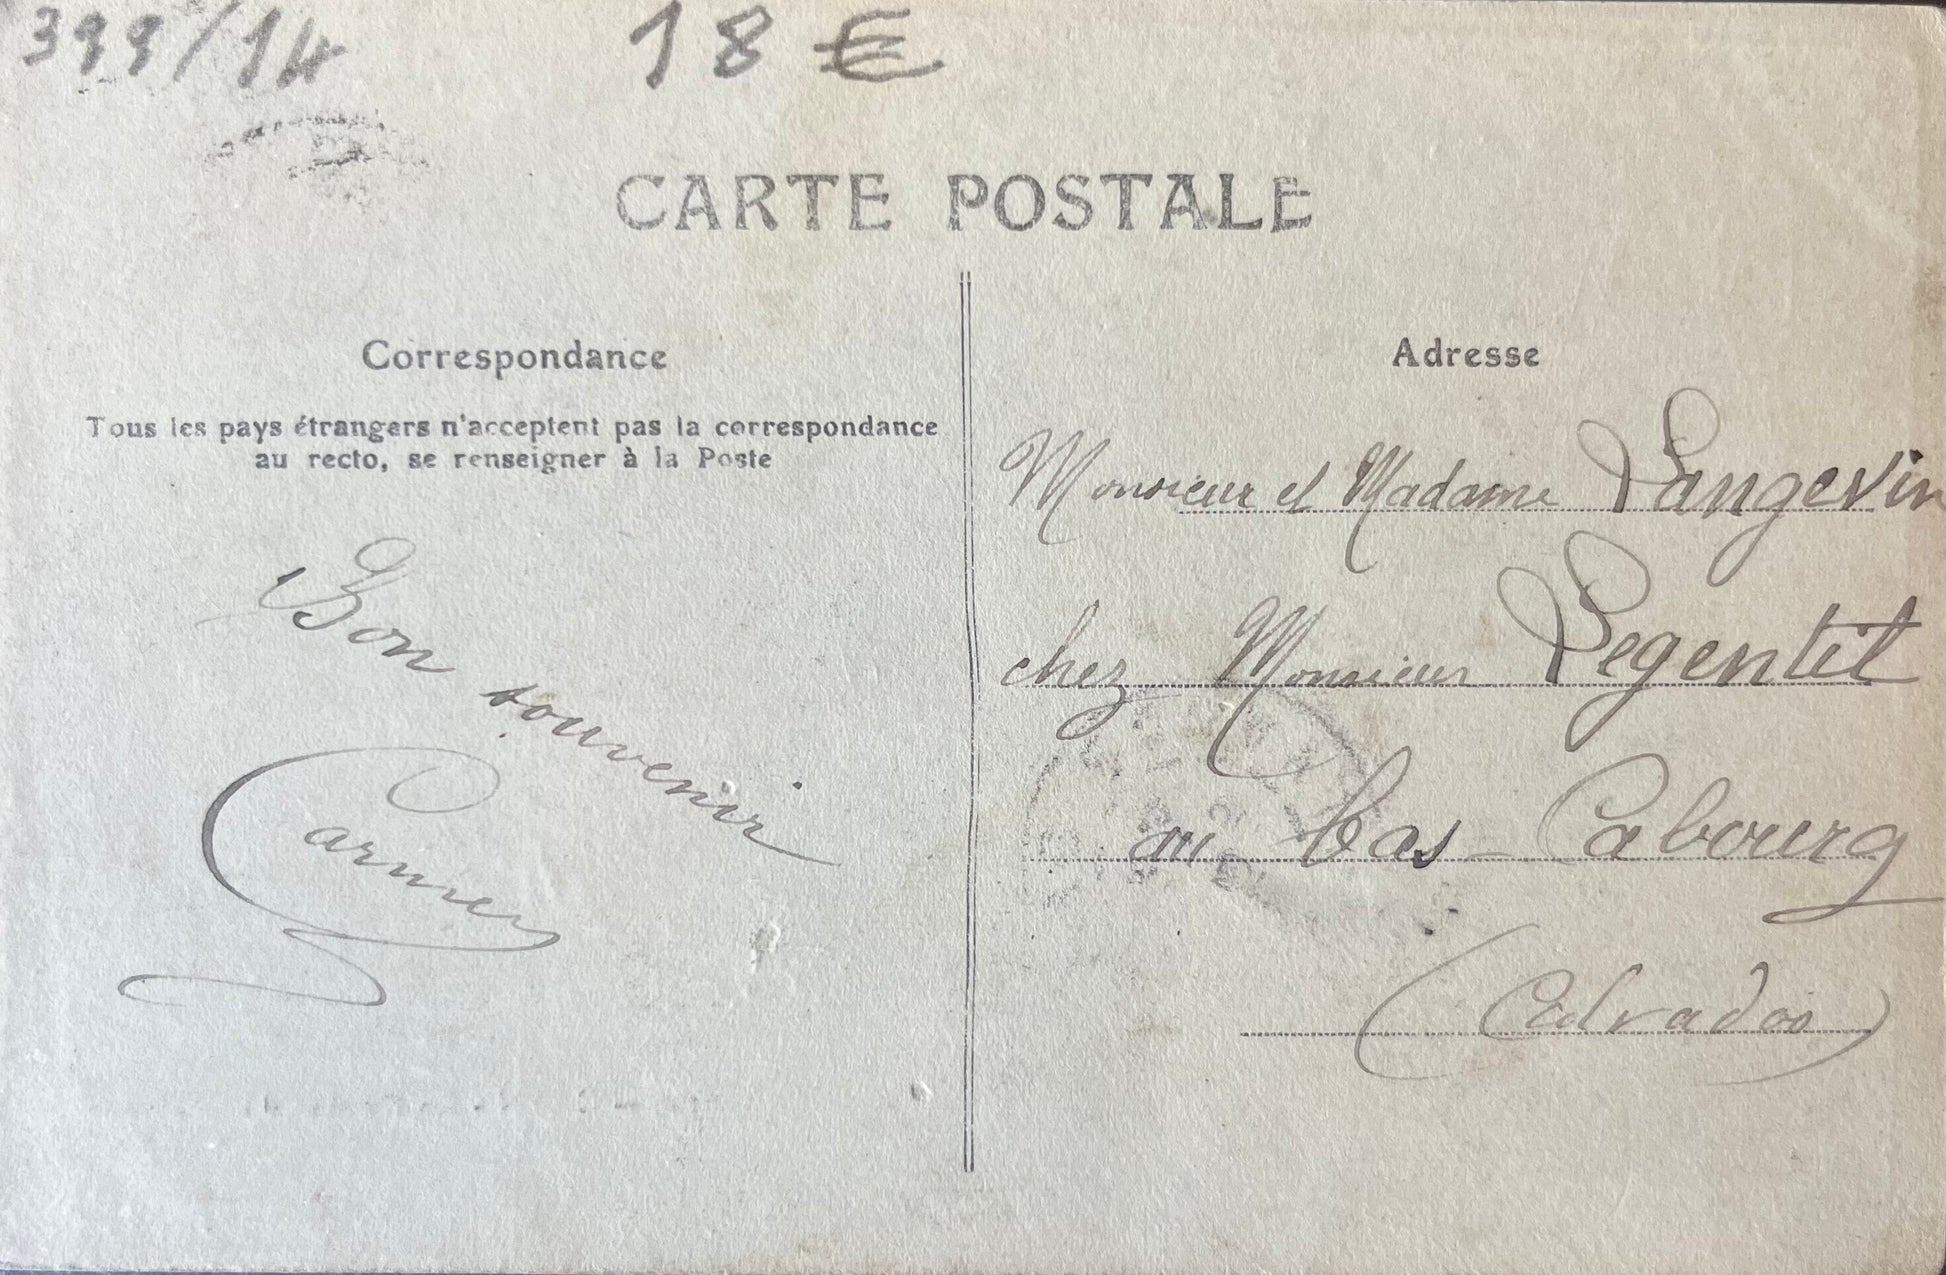 399/14
18 €
CARTE POSTALE
Correspondance
Tous les pays étrangers n'acceptent pas la correspondance
au recto, se renseigner à la Poste
Bon souvenir
Adresse
Monsieur et Madame Langevin
chez Monsieur Legentil
au bas-Cabourg
(Calvados)